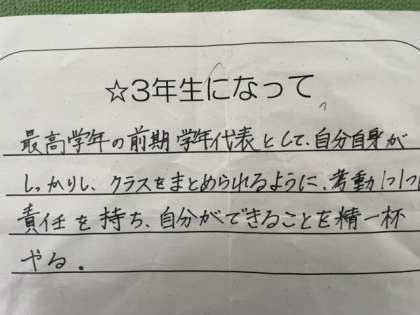 ☆3年生になって
最高学年の前期学年代表として、自分自身が
しっかりし、クラスをまとめられるように、考動1つ1つ
責任を持ち、自分ができることを精一杯
やる。